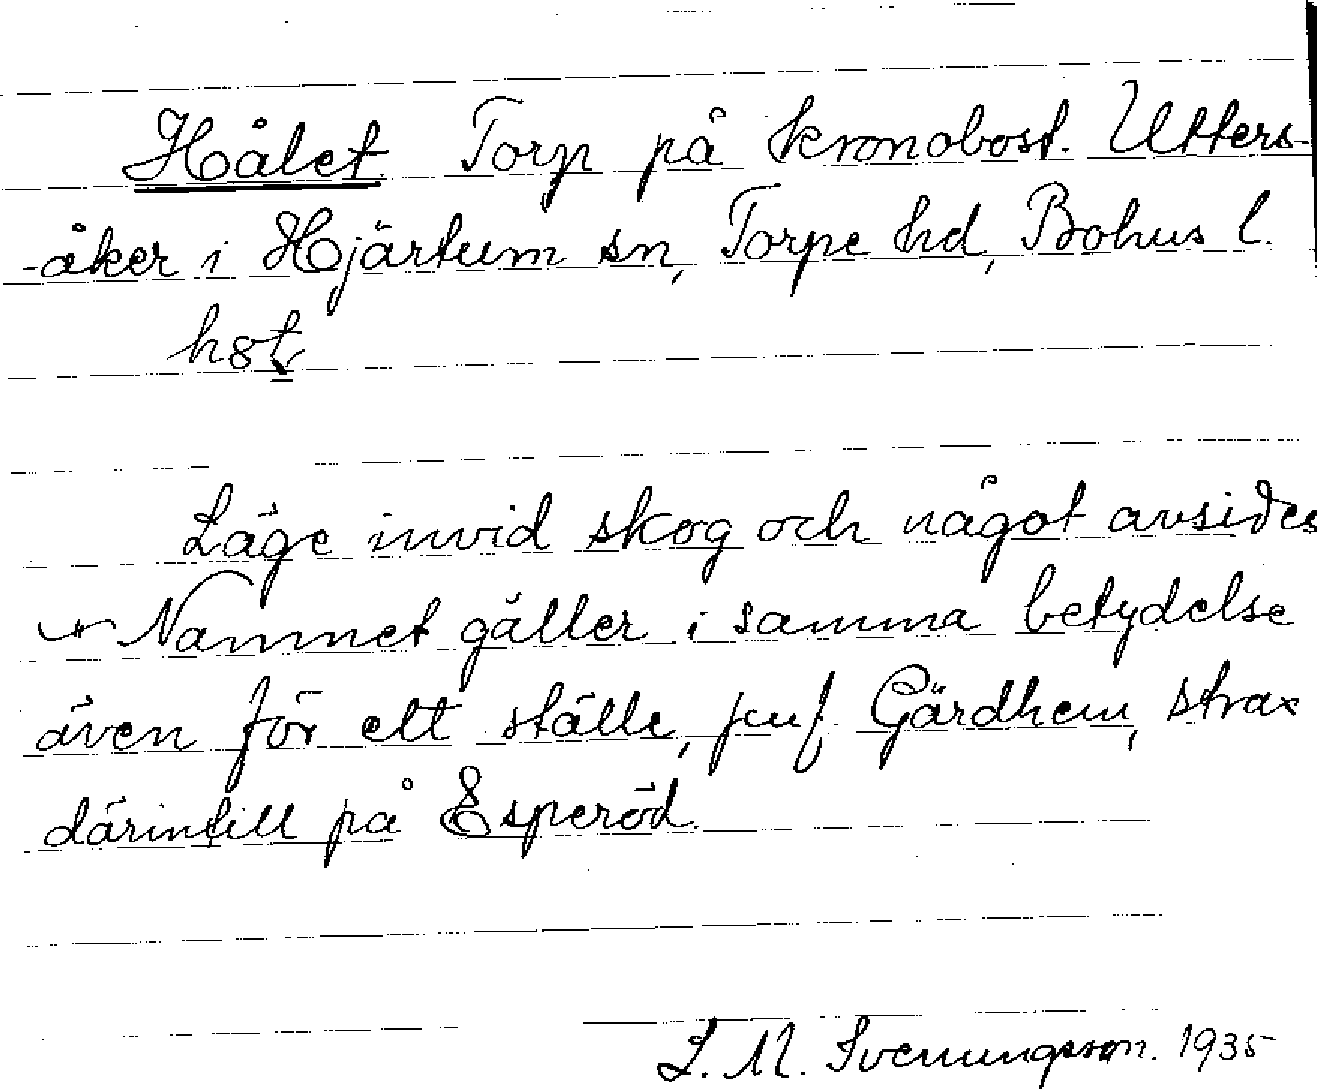 Hålet. Torp på kronobost. Utters-
-åker i Hjärtum sn, Torpe hd, Bohus l.
Läge invid skog och något avsides
Namnet gäller i samma betydelse
även för ett ställe, jmf. Gärdhem, strax
därintill på Esperöd.
L. M. Svenungsson. 1935